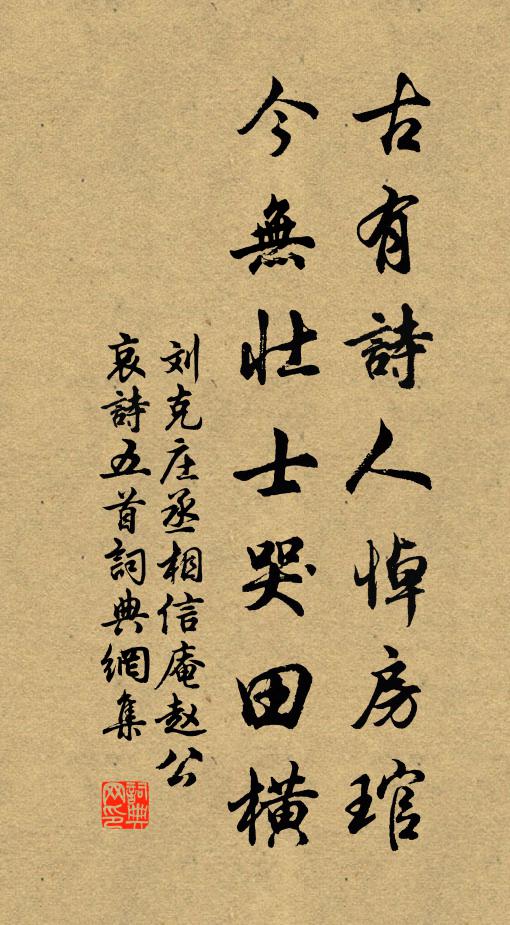 古有詩人悼房琯
今無壮士哭田橫
刘克庄丞相信庵赵公
哀詩五首詞典網集
詞典
网印